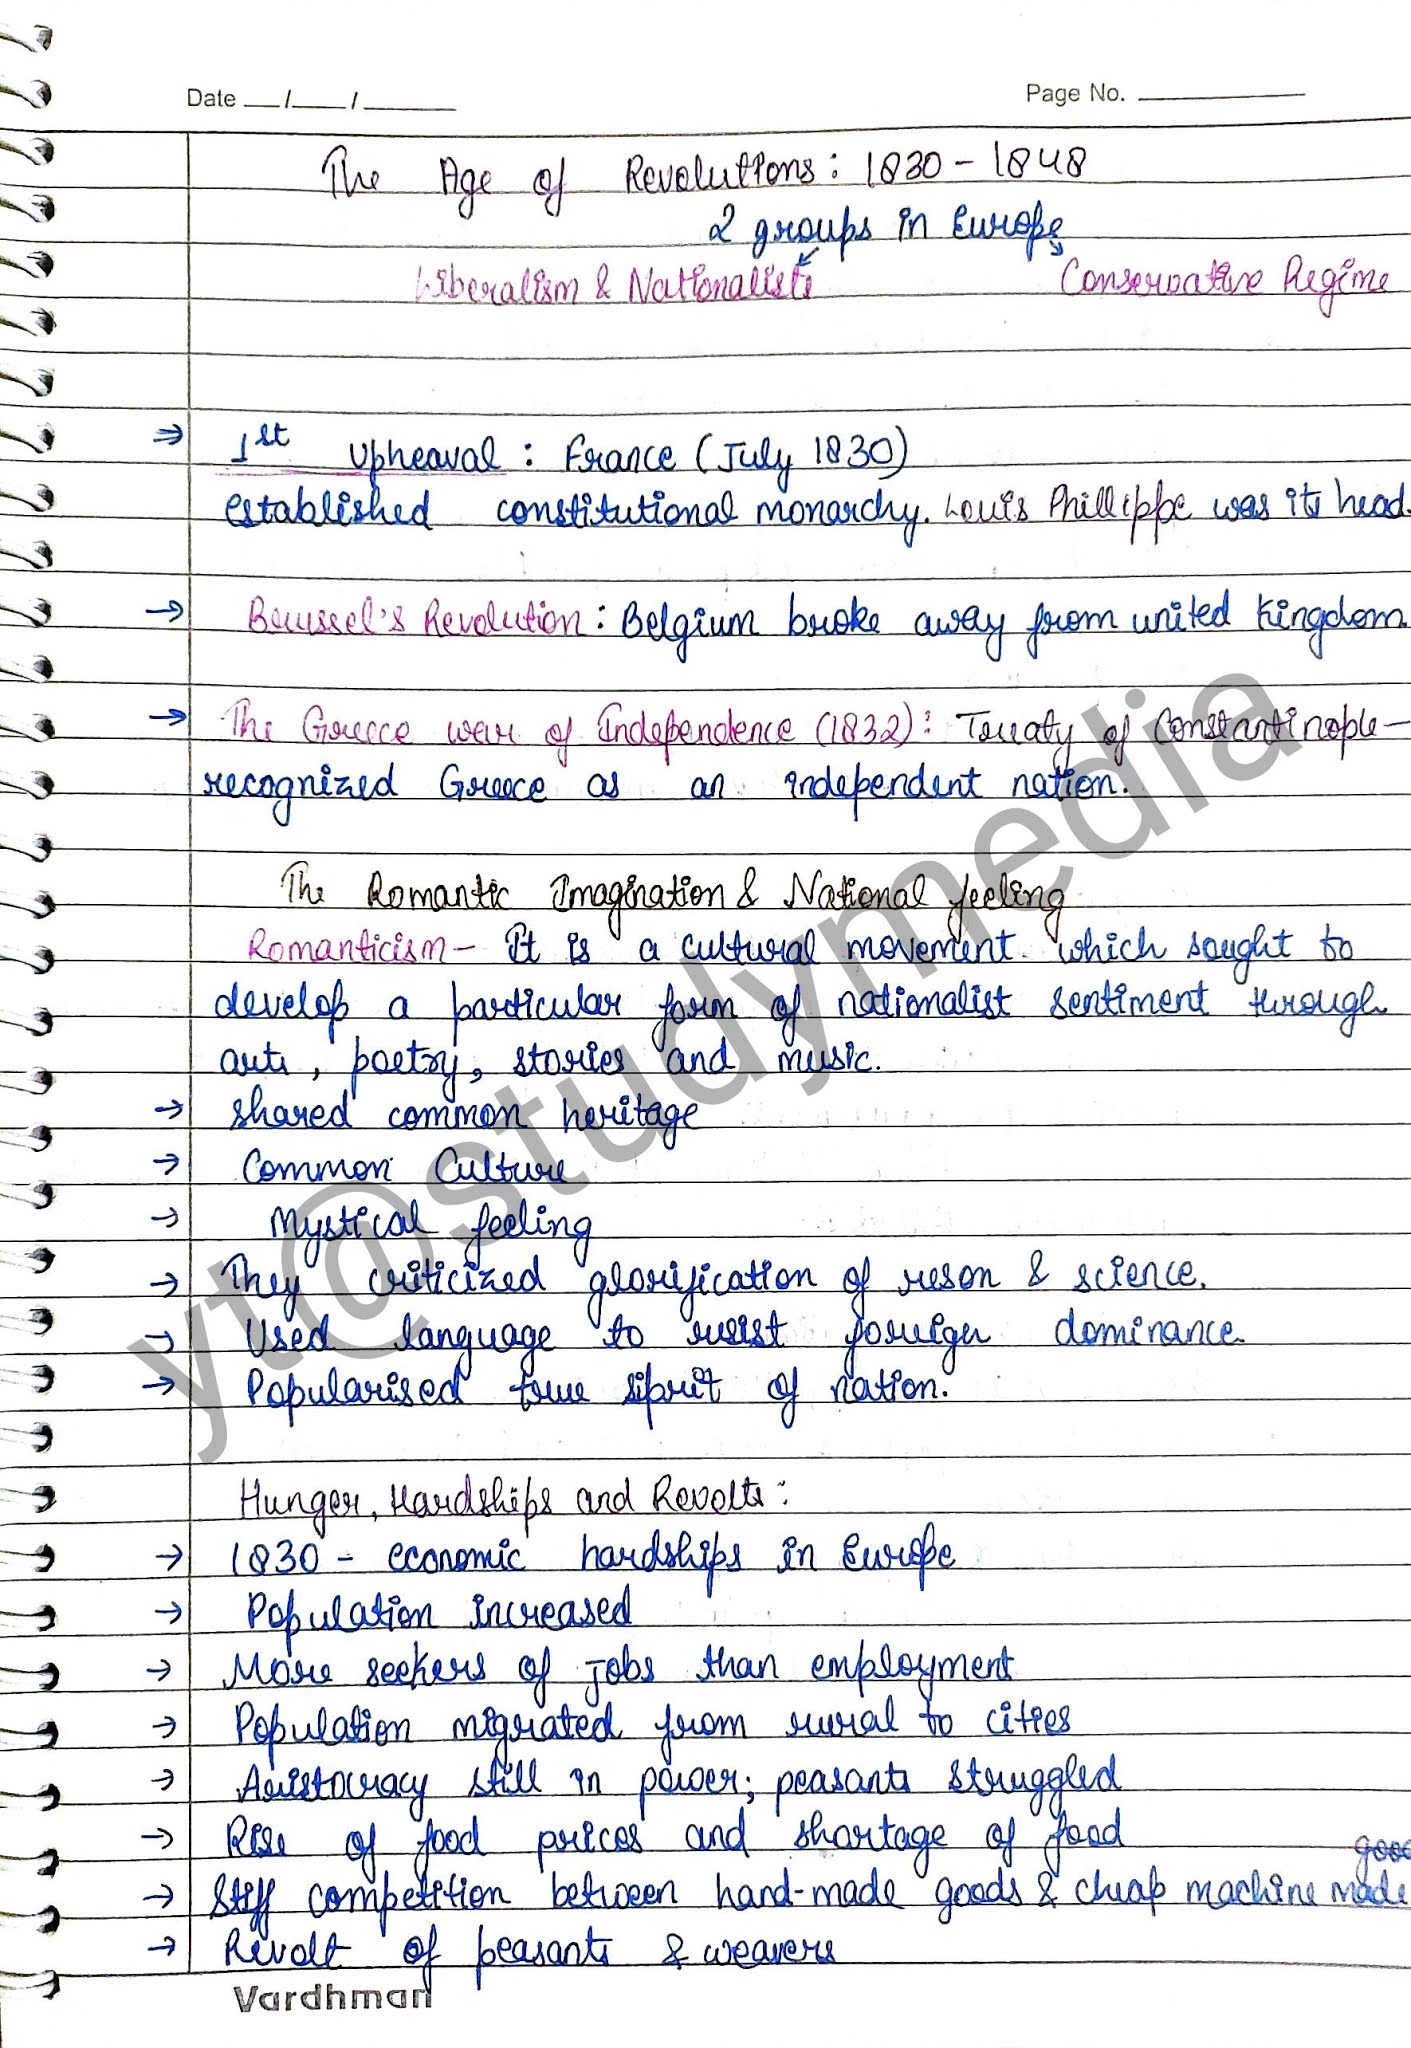 Date __/__/____ Page No. ________
The Age of Revolutions: 1830-1848
2 groups in Europe
Liberalism & Nationalists Conservative Regime
⇒ 1st Upheaval : France (July 1830)
established constitutional monarchy. Louis Phillippe was its head.
→ Brussel's Revolution: Belgium broke away from united Kingdom
→ The Greece war of Independence (1832): Treaty of Constantinople-
recognized Greece as an independent nation.
The Romantic Imagination & National feeling
Romanticism - It is a cultural movement which sought to
develop a particular form of nationalist sentiment through
arts, poetry, stories and music.
→ shared common heritage
→ Common Culture
→ Mystical feeling
→ They criticized glorification of reson & science.
→ Used language to resist foreign dominance.
→ Popularised true sipruit of nation.
Hunger, Hardships and Revolts:
→ 1830 - economic hardships in Europe
→ Population increased
→ More seekers of jobs than employment
→ Population migrated from rural to cities
→ Aristocracy still in power; peasants struggled
→ Rise of food prices and shortage of food
→ Stiff competition between hand-made goods & cheap machine made goo
→ Revolt of peasants & weavers
Vardhman
yt@studymedia